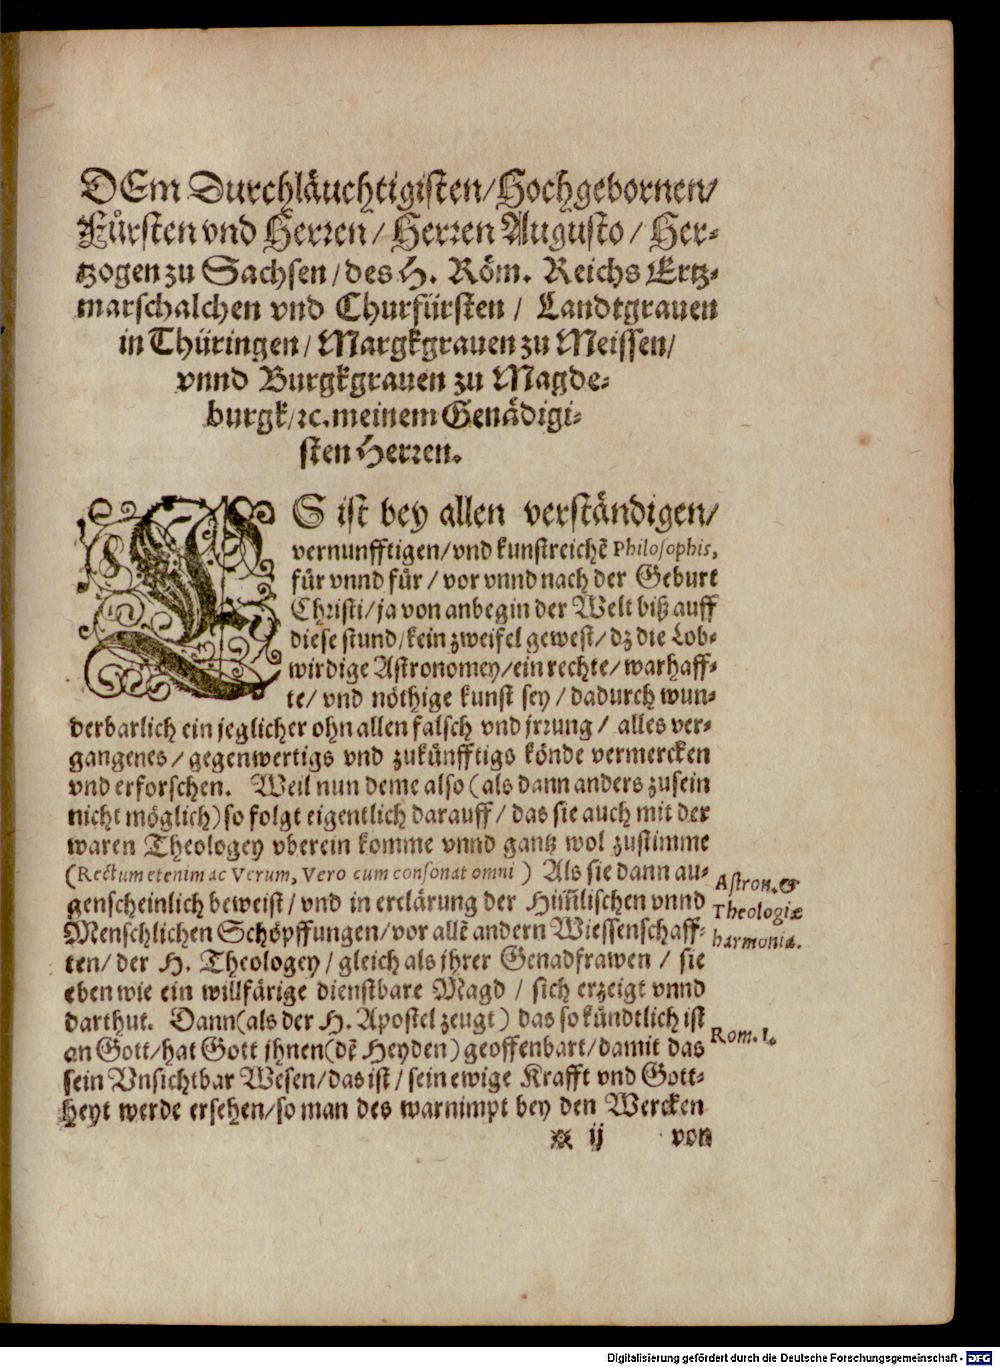 DEm Durchläuchtigisten/ Hochgebornen/
Fürsten vnd Herren/ Herren Augusto/ Her-
tzogen zu Sachsen/ des H. Röm. Reichs Ertz-
marschalchen vnd Churfürsten/ Landtgrauen
in Thüringen/ Margkgrauen zu Meissen/
vnnd Burgkgrauen zu Magde-
burgk/ ꝛc. meinem Genädigi-
sten Herren.
ES ist bey allen verständigen/
vernunfftigen/ vnd kunstreichẽ Philosophis,
für vnnd für/ vor vnnd nach der Geburt
Christi/ ja von anbegin der Welt biß auff
diese stund/ kein zweifel gewest/ dz die Lob-
wirdige Astronomey/ ein rechte/ warhaff-
te/ vnd nöthige kunst sey/ dadurch wun-
derbarlich ein jeglicher ohn allen falsch vnd jrrung/ alles ver-
gangenes/ gegenwertigs vnd zukünfftigs könde vermercken
vnd erforschen. Weil nun deme also (als dann anders zusein
nicht möglich) so folgt eigentlich darauff/ das sie auch mit der
waren Theologey vberein komme vnnd gantz wol zustimme
(Rectum etenim ac Verum, Vero cum consonat omni) Als sie dann au-
genscheinlich beweist/ vnd in erclärung der Him̃lischen vnnd
Menschlichen Schöpffungen/ vor allẽ andern Wiessenschaff-
ten/ der H. Theologey/ gleich als jhrer Genadfrawen/ sie
eben wie ein willfärige dienstbare Magd/ sich erzeigt vnnd
darthut. Dann (als der H. Apostel zeugt) das so kündtlich ist
an Gott/ hat Gott jhnen (dẽ Heyden) geoffenbart/ damit das
sein Vnsichtbar Wesen/ das ist/ sein ewige Krafft vnd Gott-
heyt werde ersehen/ so man des warnimpt bey den Wercken
ij von
Astron. &
Theologiæ
harmonia.
Rom. 1.
Digitalisierung gefördert durch die Deutsche Forschungsgemeinschaft - DFG